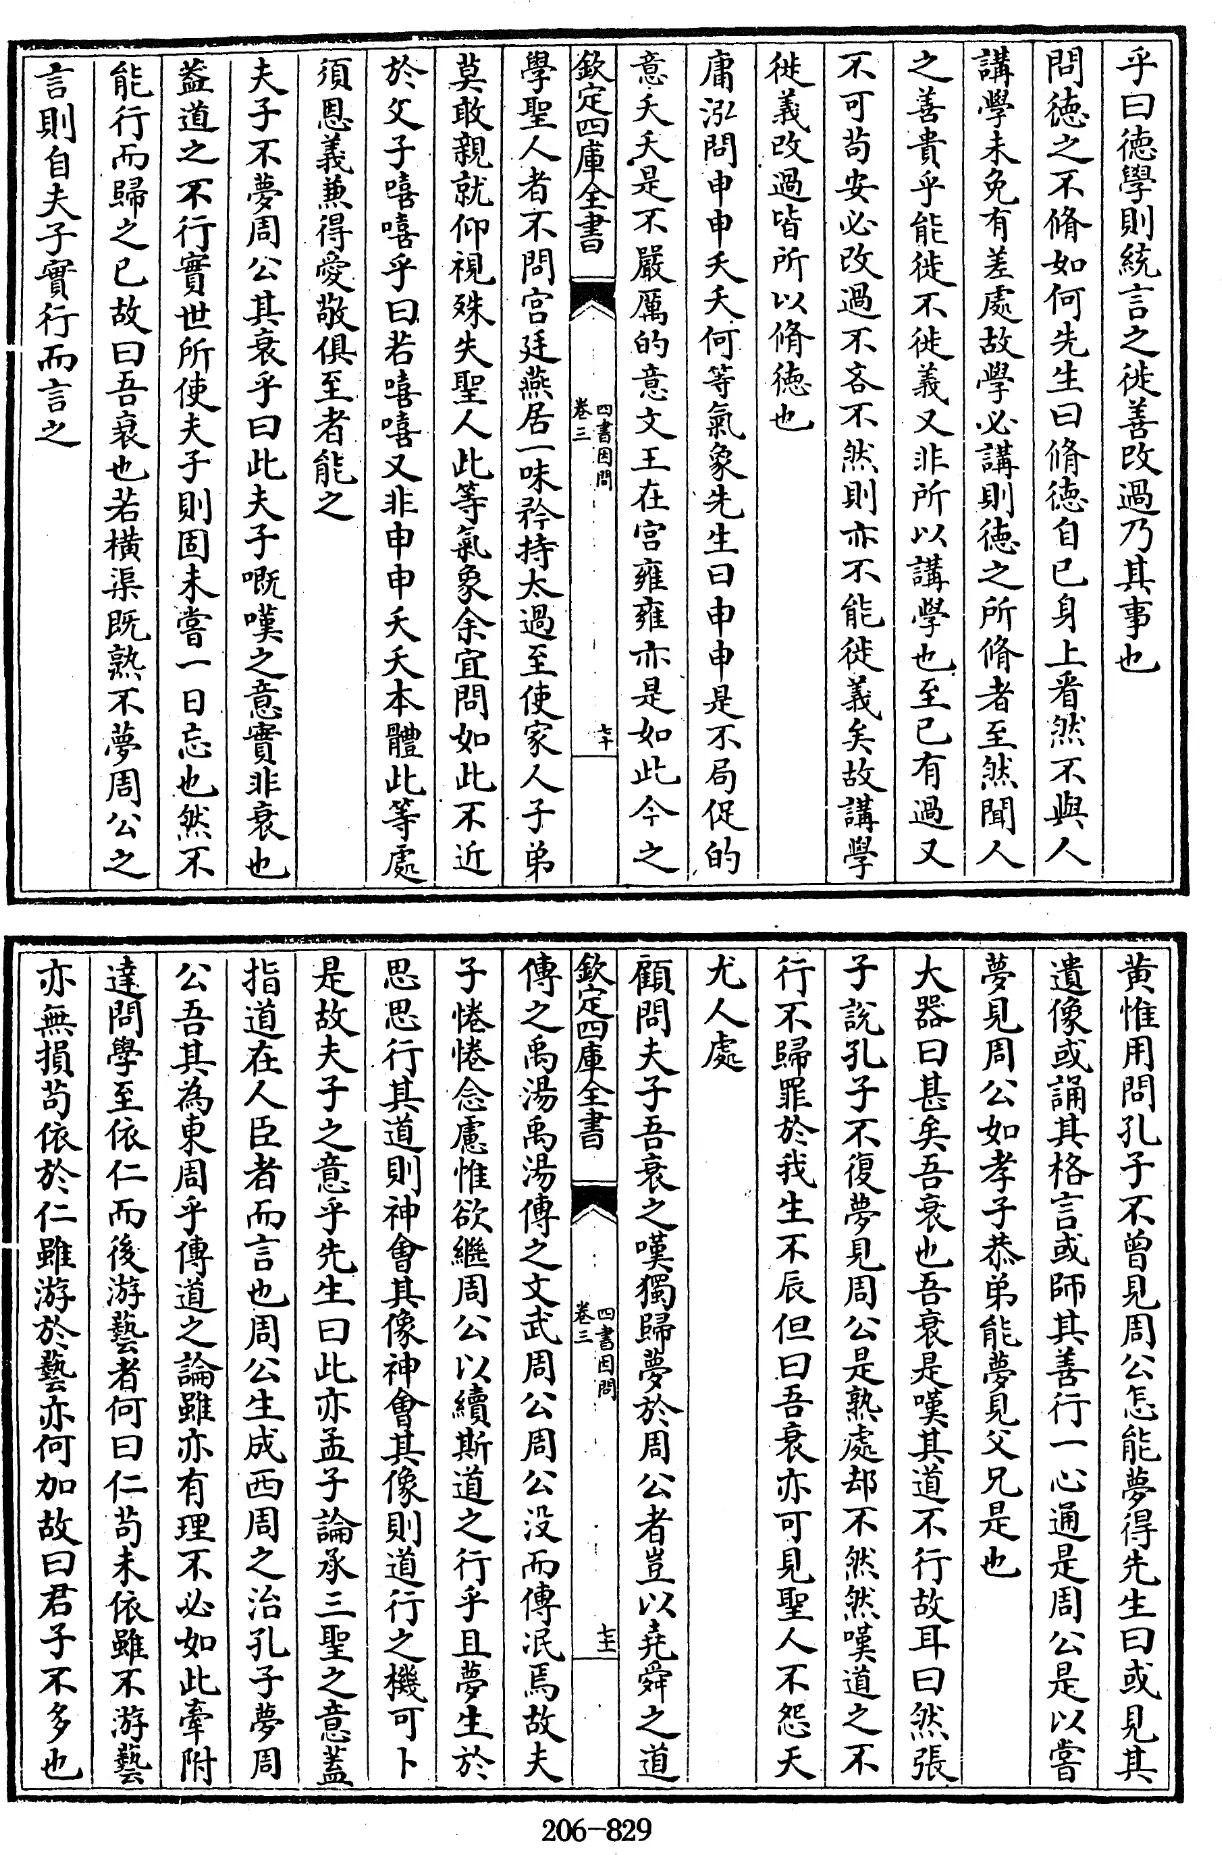 乎曰徳學則統言之徙善改過乃其事也
問徳之不脩如何先生曰脩徳自已身上㸔然不與人
講學未免有差處故學必講則徳之所脩者至然聞人
之善貴乎能徙不徙義又非所以講學也至已有過又
不可苟安必改過不吝不然則亦不能徙義矣故講學
徙義改過皆所以脩徳也
庸泓問申申夭夭何等氣象先生曰申申是不局促的
意夭夭是不嚴厲的意文王在宮雍雍亦是如此今之
欽定四庫全書
四書因問
卷三
七十
學聖人者不問宮廷燕居一味矜持太過至使家人子弟
莫敢親就仰視殊失聖人此等氣象余宜問如此不近
於父子嘻嘻乎曰若嘻嘻又非申申夭夭本體此等處
須恩義兼得愛敬俱至者能之
夫子不夢周公其衰乎曰此夫子嘅嘆之意實非衰也
葢道之不行實世所使夫子則固未嘗一日忘也然不
能行而歸之已故曰吾衰也若橫渠既熟不夢周公之
言則自夫子實行而言之
黄惟用問孔子不曾見周公怎能夢得先生曰或見其
遺像或誦其格言或師其善行一心通是周公是以嘗
夢見周公如孝子恭弟能夢見父兄是也
大器曰甚矣吾衰也吾衰是嘆其道不行故耳曰然張
子説孔子不復夢見周公是熟處却不然然嘆道之不
行不歸罪於我生不辰但曰吾衰亦可見聖人不怨天
尤人處
顧問夫子吾衰之嘆獨歸夢於周公者豈以堯舜之道
欽定四庫全書
四書因問
卷三
七十一
傳之禹湯禹湯傳之文武周公周公没而傳泯焉故夫
子惓惓念慮惟欲繼周公以續斯道之行乎且夢生於
思思行其道則神會其像神會其像則道行之機可卜
是故夫子之意乎先生曰此亦孟子論承三聖之意蓋
指道在人臣者而言也周公生成西周之治孔子夢周
公吾其為東周乎傳道之論雖亦有理不必如此牽附
達問學至依仁而後游藝者何曰仁苟未依雖不游藝
亦無損苟依於仁雖游於藝亦何加故曰君子不多也
206-829